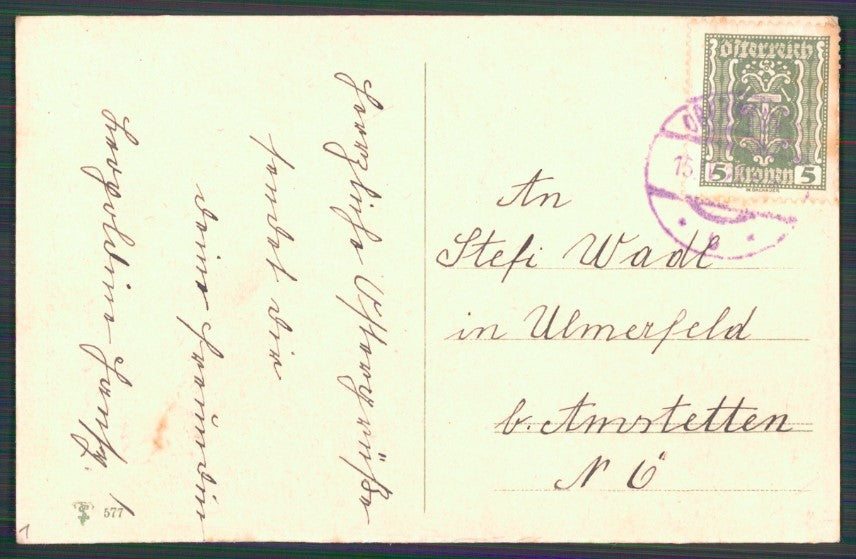 Herzliche Ostergrüße
sendet dir
deine Freundin
Leopoldine
An
Stefi Wadl
in Ulmerfeld
b. Amstetten
N Ö
Österreich
5 Kronen 5
15.
* b *
577
1